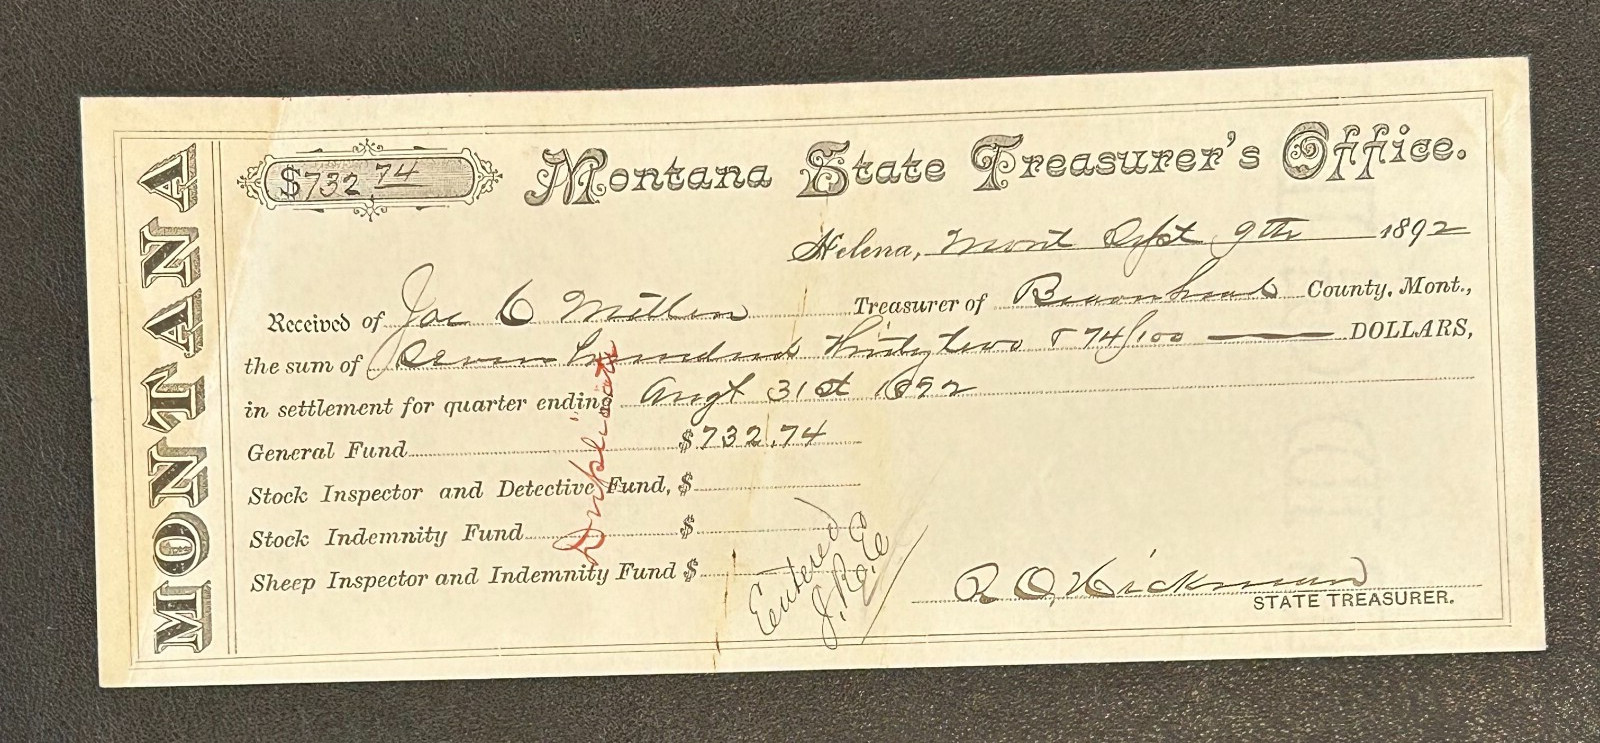 MONTANA
$732 74
Montana State Treasurer's Office.
Helena, Mont Sept 9th 1892
Received of Joe C Millen Treasurer of Beaverhead County, Mont.,
the sum of Seven hundred Thirty two & 74/100 DOLLARS,
in settlement for quarter ending Augt 31st 1892
General Fund $732.74
Stock Inspector and Detective Fund, $
Stock Indemnity Fund $
Sheep Inspector and Indemnity Fund $
Duplicate
Entered
R. O. Hickman
STATE TREASURER.